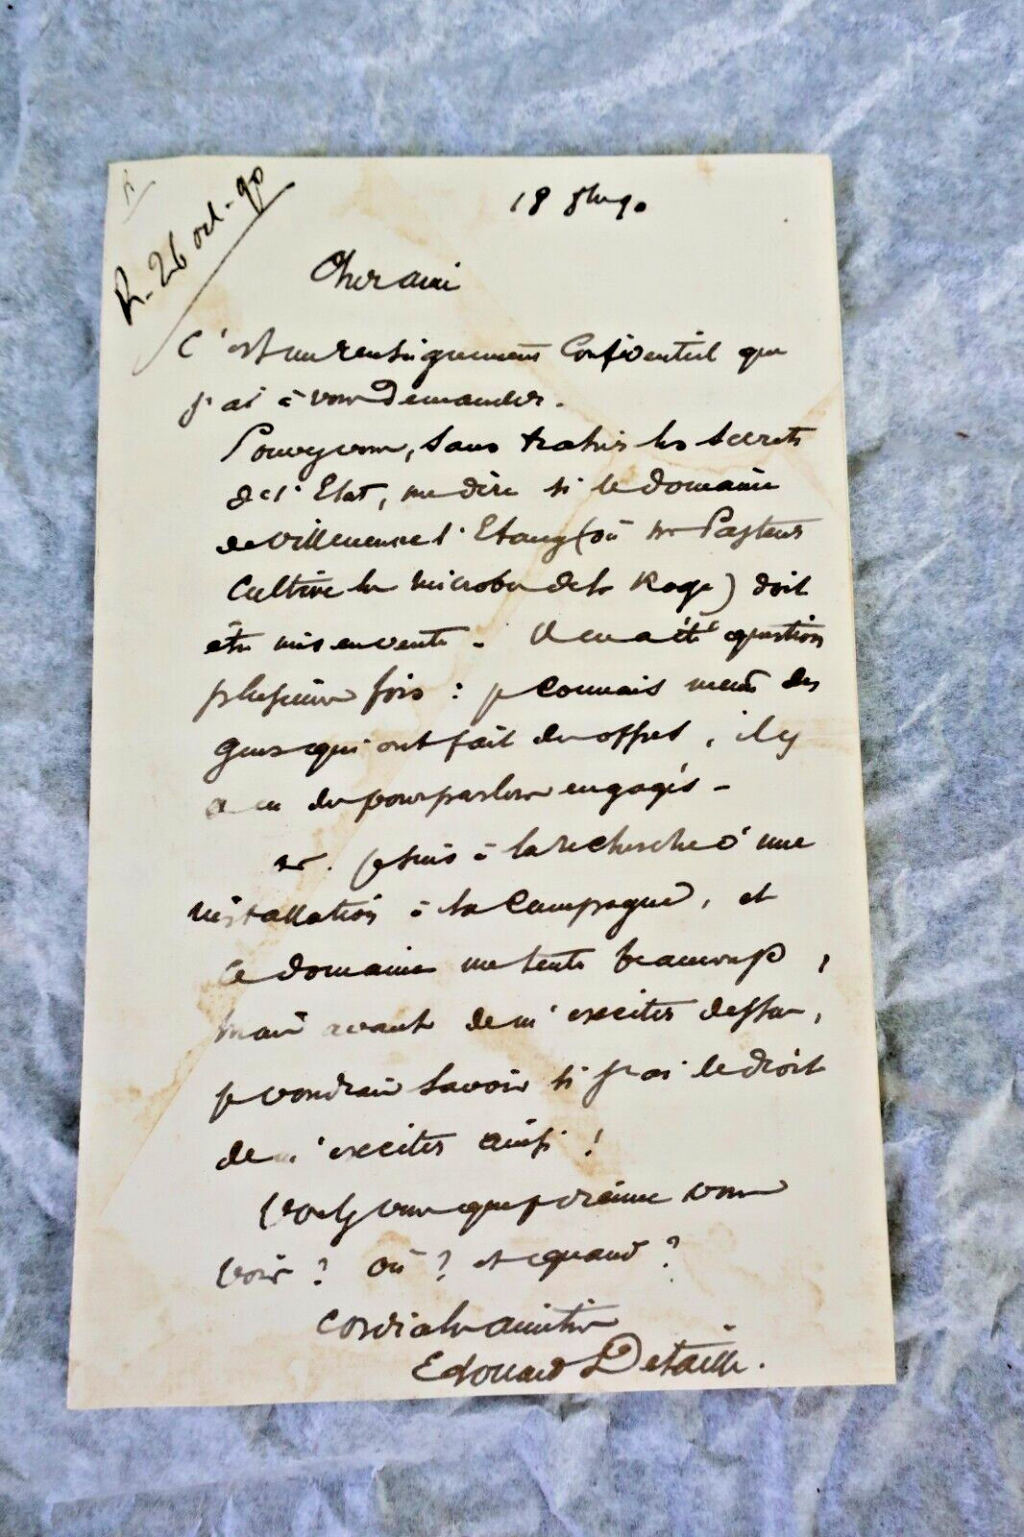 R
R. 26 oct. 90
18 8bre 90
Cher ami
C'est un renseignement Confidentiel que
j'ai à vous Demander.
Pouvez vous, sans trahir les secrets
de l'Etat, me dire si le domaine
de Villeneuve l'Etang (où Mr Pasteur
Cultive les microbes de la Rage) doit
être mis en vente. Il en a été question
plusieurs fois : je connais même des
gens qui ont fait des offres, il y
a eu des pourparlers engagés -
Je suis à la recherche d'une
installation à la Campagne, et
ce domaine me tente beaucoup,
mais avant de m'exciter dessus,
je voudrais savoir si j'ai le droit
de m'exciter ainsi !
Voulez vous que je vienne vous
voir ? Où ? et quand ?
Cordiales amitiés
Edouard Detaille.